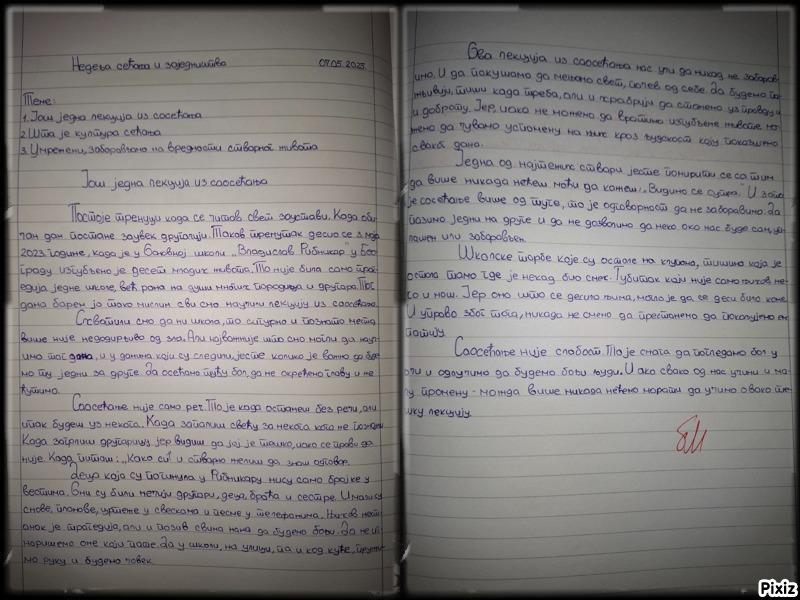 Недеља сећања и заједништва 07.05.2025.
Теме:
1. Још једна лекција из саосећања
2. Шта је култура сећања
3. Умрежени, заборављамо на вредности стварног живота
Још једна лекција из саосећања
Постоје тренуци када се читав свет заустави. Када оби-
чан дан постане заувек другачији. Такав тренутак десио се 3. маја
2023 године, када је у Основној школи „Владислав Рибникар" у Бео-
граду изгубљено је десет младих живота. То није била само тра-
гедија једне школе, већ рана на души многих породица и другара. Тог
дана барем ја тако мислим сви смо научили лекцију из саосећања.
Схватили смо да ни школа, то сигурно и познато место
више није недодирљиво од зла. Али најважније што смо могли да научи-
мо тог дана, и у данима који су следили, јесте колико је важно да буде-
мо ту једни за друге. Да осећамо туђу бол, да не окрећемо главу и не
ћутимо.
Саосећање није само реч. То је када останеш без речи, али
ипак будеш уз некога. Када запалиш свећу за некога кога не познајеш
Када загрлиш другарицу јер видиш да јој је тешко, иако се прави да
није. Када питаш: „Како си?" и стварно желиш да знаш одговор.
Деца која су погинула у Рибникару нису само бројке у
вестима. Они су били нечији другари, деца, браћа и сестре. Имали су
снове, планове, цртеже у свескама и песме у телефонима. Њихов нест-
анак је трагедија, али и позив свима нама да будемо бољи. Да не иг-
норишемо оне који пате. Да у школи, на улици, па и код куће, пружи-
мо руку и будемо човек.
Ова лекција из саосећања нас учи да никад не заборав-
имо. И да покушамо да мењамо свет, почев од себе. Да будемо па-
жљивији, тиши када треба, али и храбрији да станемо уз правду
и доброту. Јер, иако не можемо да вратимо изгубљене животе мо-
жемо да чувамо успомену на њих кроз људскост коју показујемо
сваког дана.
Једна од најтежих ствари јесте помирити се са тим
да више никада нећеш моћи да кажеш: „Видимо се сутра." И зато
је саосећање више од туге, то је одговорност да не заборавимо. Да
пазимо једни на друге и да не дозволимо да неко око нас буде сам, у-
плашен или заборављен.
Школске торбе које су остале на клупама, тишина која је
остала тамо где је некад био смех. Губитак који није само њихов не-
го и наш. Јер оно што се десило њима, могло је да се деси било коме.
И управо због тога, никада не смемо да престанемо да показујемо ем-
патију.
Саосећање није слабост. То је снага да погледамо бол у
очи и одлучимо да будемо бољи људи. И ако свако од нас учини и ма-
лу промену - можда више никада нећемо морати да учимо овако те-
шку лекцију.
Pixiz